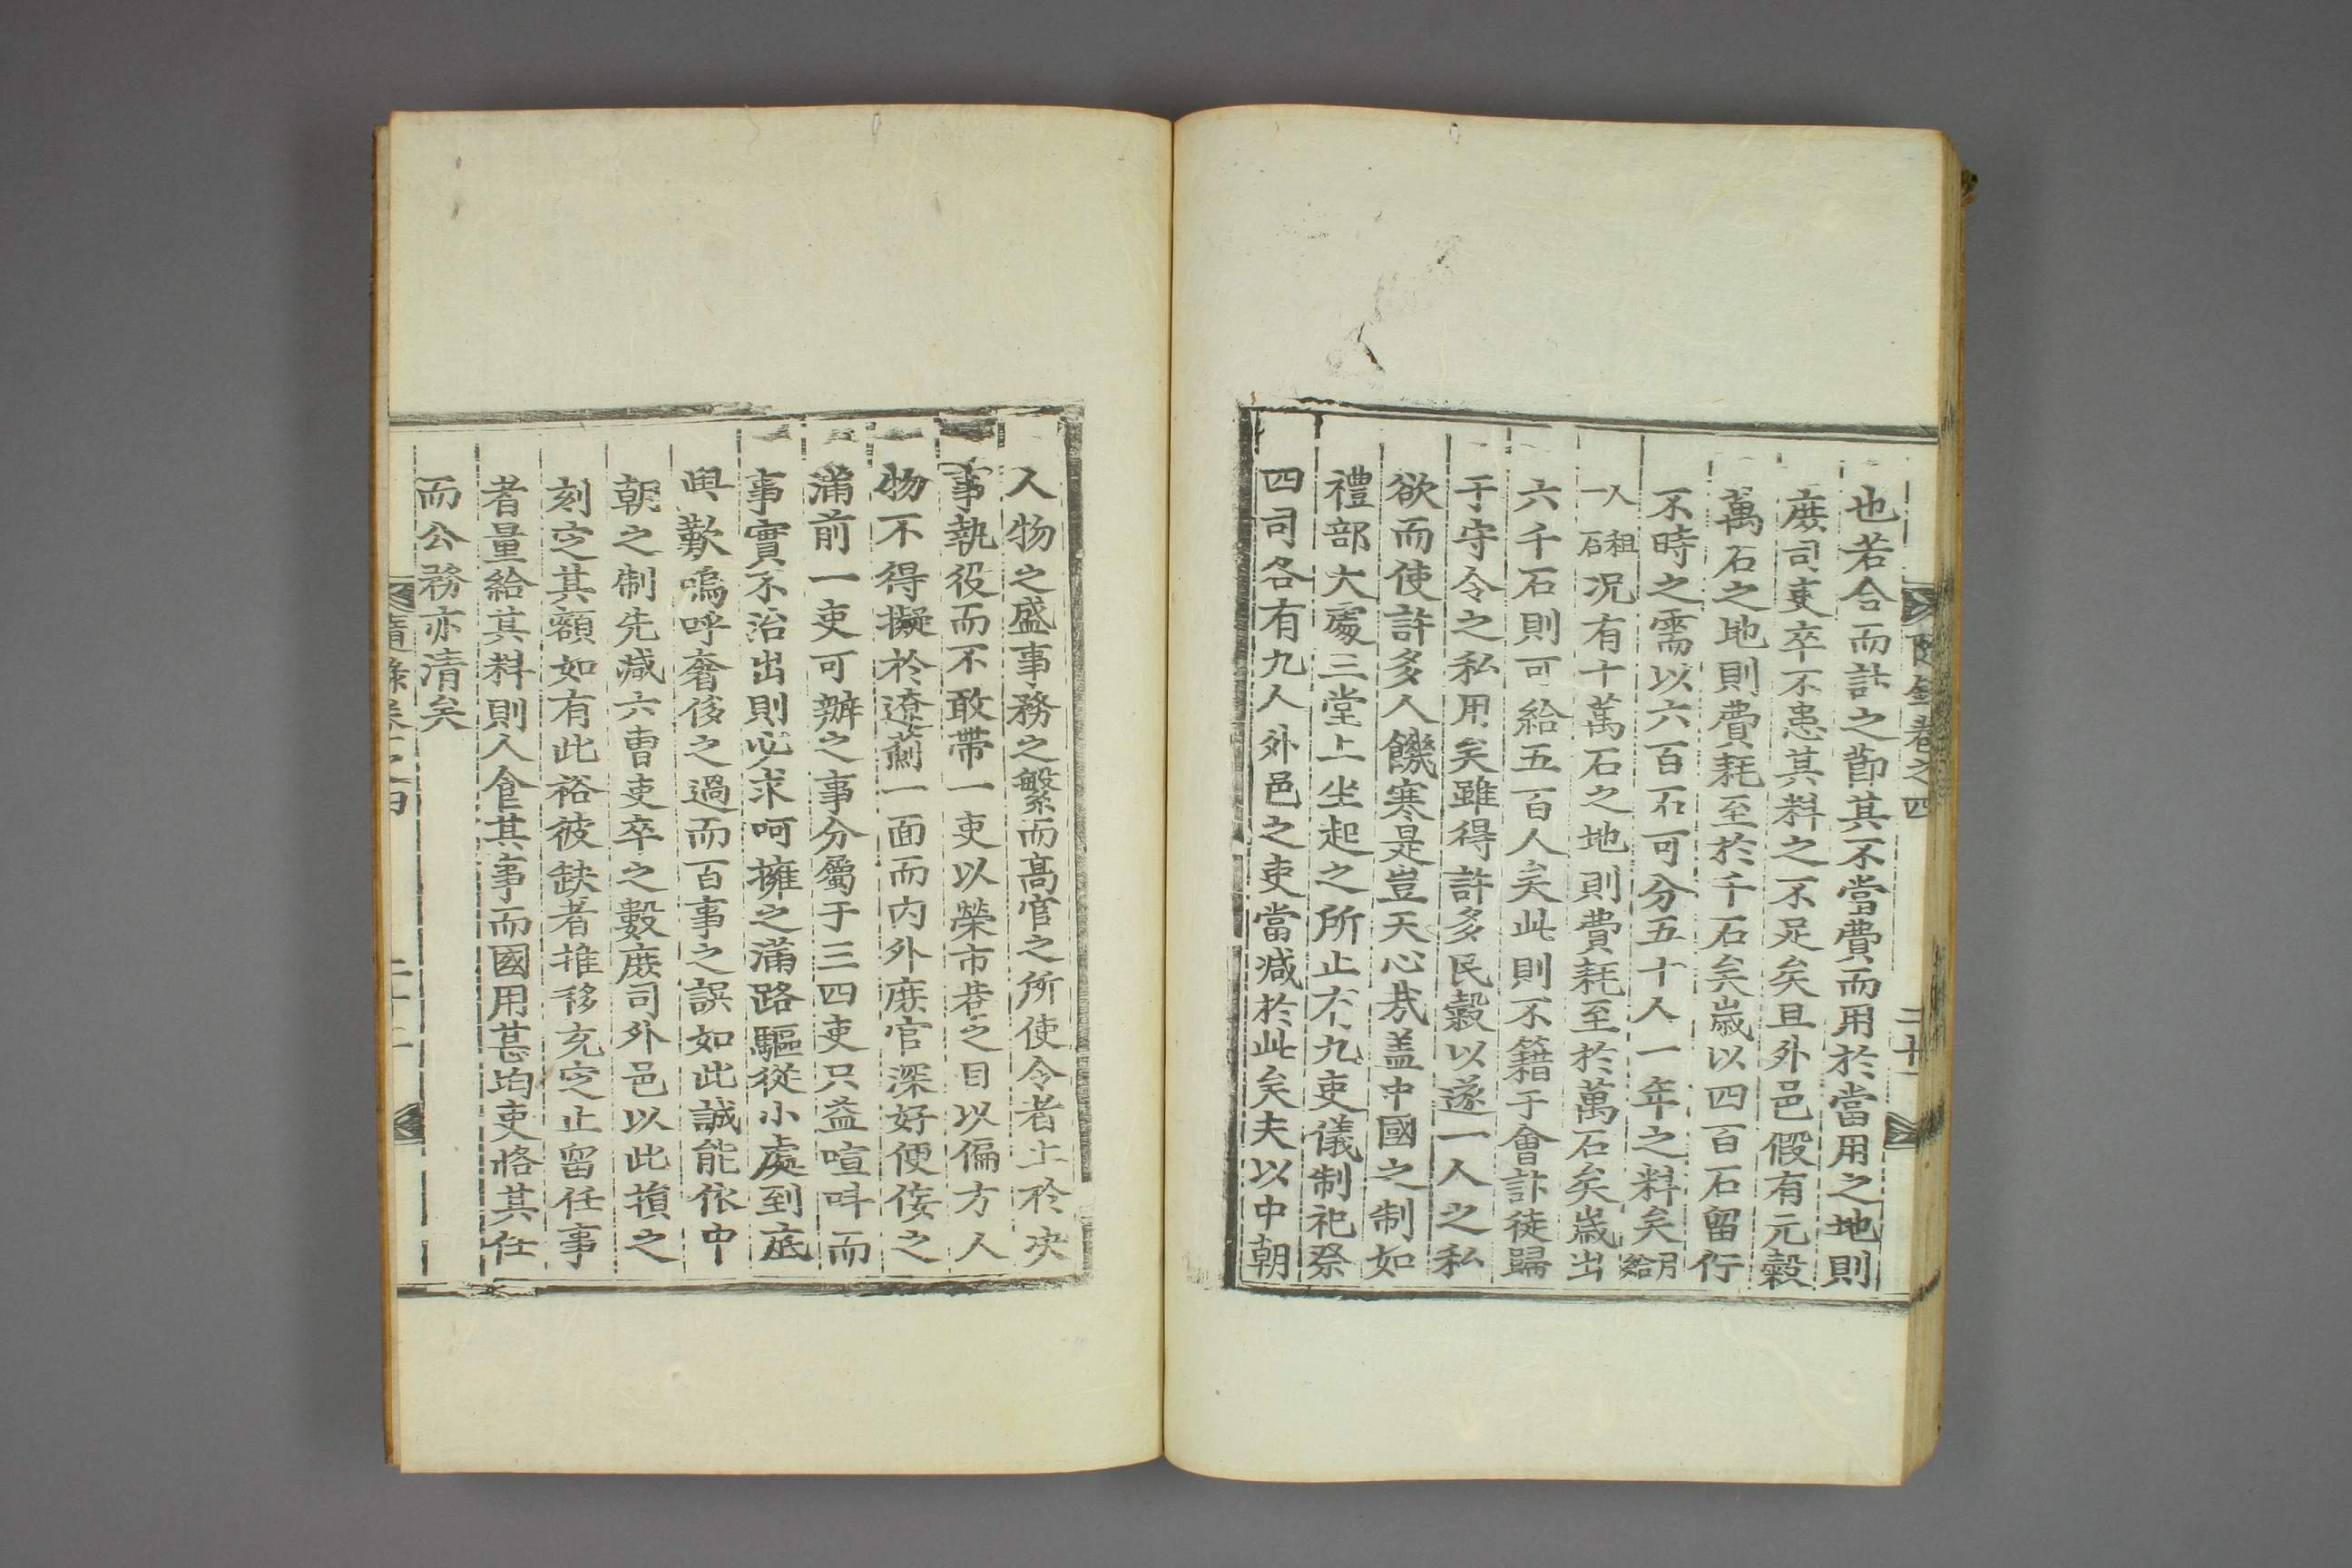 隨錄卷之四 二十
也若合而計之節其不當費而用於當用之地則
庶司吏卒不患其料之不足矣且外邑假有元穀
萬石之地則費耗至於千石矣歲以四百石留行
不時之需以六百石可分五十人一年之料矣月給
一人租一石况有十萬石之地則費耗至於萬石矣歲出
六千石則可給五百人矣此則不籍于會計徒歸
于守令之私用矣雖得許多民穀以遂一人之私
欲而使許多人饑寒是豈天心哉盖中國之制如
禮部大處三堂上坐起之所止不九吏儀制祀祭
四司各有九人外邑之吏當减於此矣夫以中朝
人物之盛事務之繁而高官之所使令者止於决
事執役而不敢帶一吏以榮市巷之目以偏方人
物不得擬於遼薊一面而内外庶官深好便侫之
滿前一吏可辦之事分屬于三四吏只益喧呌而
事實不治出則必求呵擁之滿路驅從小處到底
興歎嗚呼奢侈之過而百事之誤如此誠能依中
朝之制先减六曹吏卒之數庶司外邑以此損之
刻定其額如有此裕彼缺者推移充定止留任事
者量給其料則人食其事而國用甚均吏恪其任
而公務亦清矣
隨錄卷之四